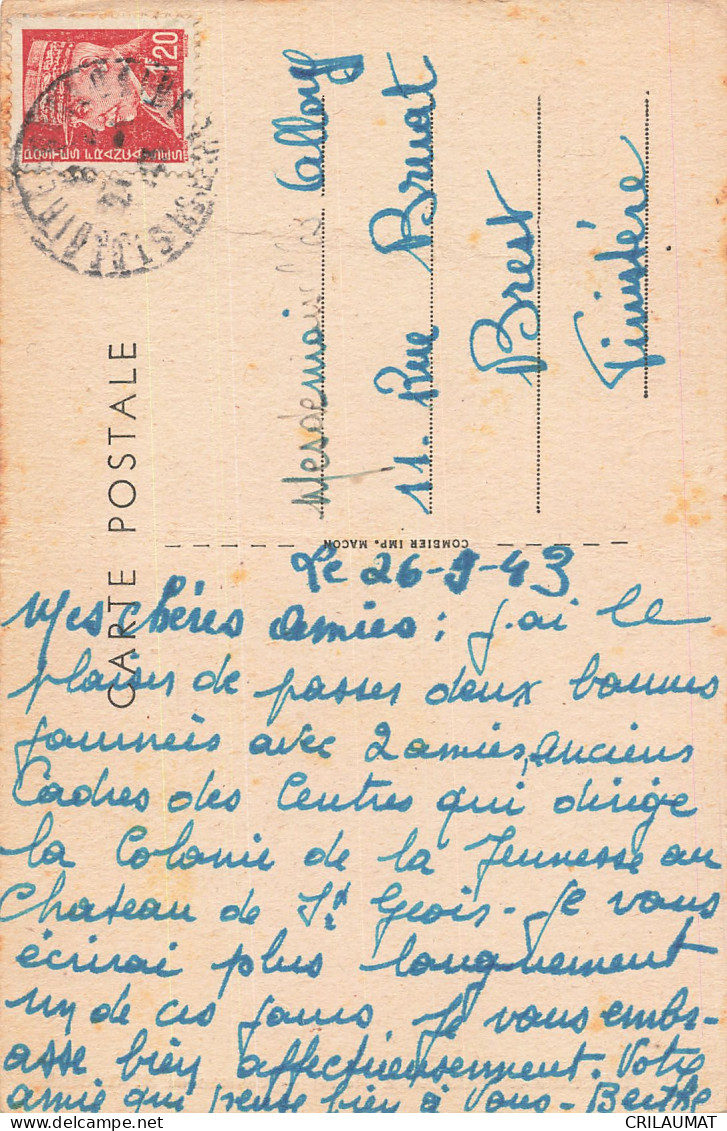 POSTES FRANÇAISES
1F20
CARTE POSTALE
COMBIER IMP. MACON
Mesdemoiselles Callarec
11. Rue Bruat
Brest
Finistère
Le 26-9-43
Mes chères amies : J'ai le
plaisir de passer deux bonnes
journeés avec 2 amies, anciens
Cadres des Centres qui dirige
la Colonie de la Jeunesse au
Chateau de St Geois - Je vous
écrirai plus longuement
un de ces jours. Je vous embr-
asse bien affectueusement. Votre
amie qui pense bien à Vous - Berthe
CRILAUMAT